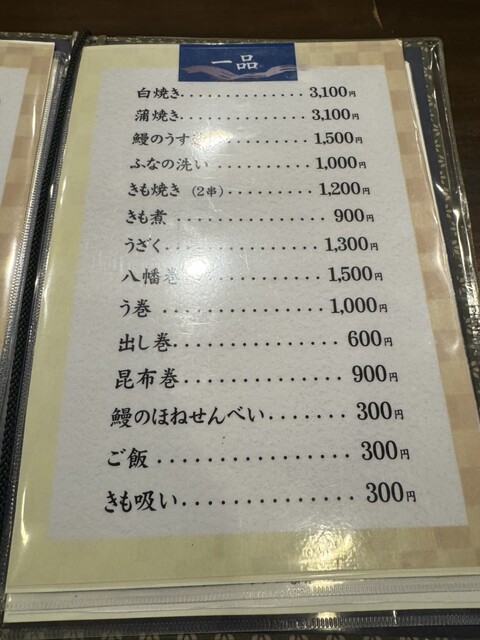 一品
白焼き.............. 3,100円
蒲焼き.............. 3,100円
鰻のうす............ 1,500円
ふなの洗い.......... 1,000円
きも焼き（2串）......... 1,200円
きも煮 .............. 900円
うざく.............. 1,300円
八幡巻.............. 1,500円
う巻 ............... 1,000円
出し巻............... 600円
昆布巻............... 900円
鰻のほねせんべい....... 300円
ご飯 ................ 300円
きも吸い.............. 300円